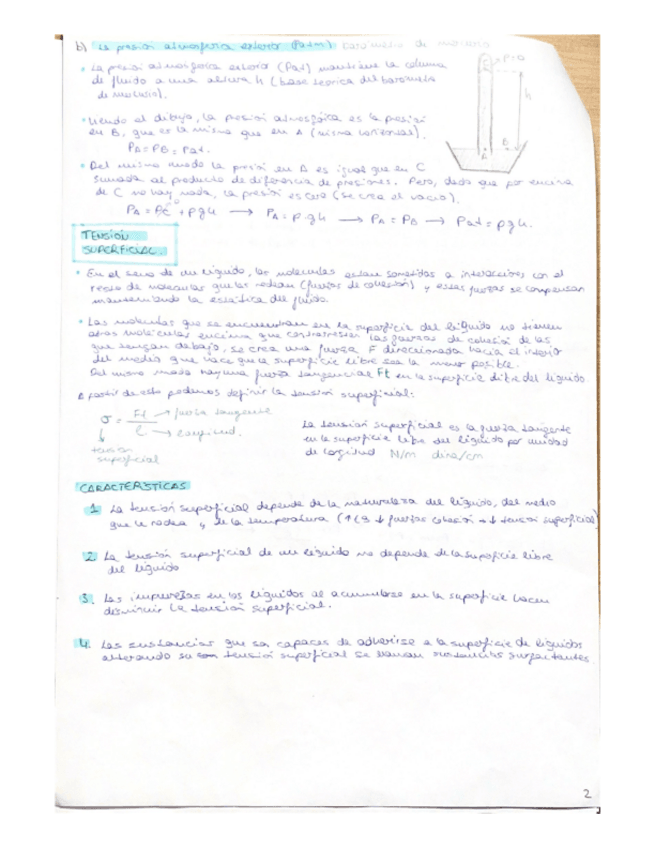 b) La presión atmosférica exterior (Patm) barómetro de mercurio
• La presión atmosférica exterior (Pat) mantiene la columna
de fluido a una altura h (base teórica del barómetro
de mercurio).
P=0
h
A
B
• Viendo el dibujo, la presión atmosférica es la presión
en B, que es la misma que en A (misma horizontal).
PA = PB = Pat.
• Del mismo modo la presión en A es igual que en C
sumada al producto de diferencia de presiones. Pero, dado que por encima
de C no hay nada, la presión es cero (se crea el vacío).
PA = PC + ρgh → PA = ρ·gh → PA = PB → Pat = ρgh.
TENSIÓN
SUPERFICIAL.
• En el seno de un líquido, las moléculas están sometidas a interacciones con el
resto de moléculas que las rodean (fuerzas de cohesión) y estas fuerzas se compensan
manteniendo la estática del fluido.
• Las moléculas que se encuentran en la superficie del líquido no tienen
otras moléculas encima que contrarresten las fuerzas de cohesión de las
que tengan debajo, se crea una fuerza F direccionada hacia el interior
del medio que hace que la superficie libre sea la menor posible.
Del mismo modo hay una fuerza tangencial Ft en la superficie libre del líquido.
A partir de esto podemos definir la tensión superficial:
σ = Ft → fuerza tangente
L → longitud.
tensión
superficial
La tensión superficial es la fuerza tangente
en la superficie libre del líquido por unidad
de longitud N/m dina/cm
CARACTERÍSTICAS
1. La tensión superficial depende de la naturaleza del líquido, del medio
que le rodea y de la temperatura ( ↓ fuerzas cohesión → ↓ tensión superficial)
2. La tensión superficial de un líquido no depende de la superficie libre
del líquido
3. Las impurezas en los líquidos al acumularse en la superficie hacen
disminuir la tensión superficial.
4. Las sustancias que son capaces de adherirse a la superficie de líquidos
alterando su tensión superficial se llaman sustancias surfactantes.
2